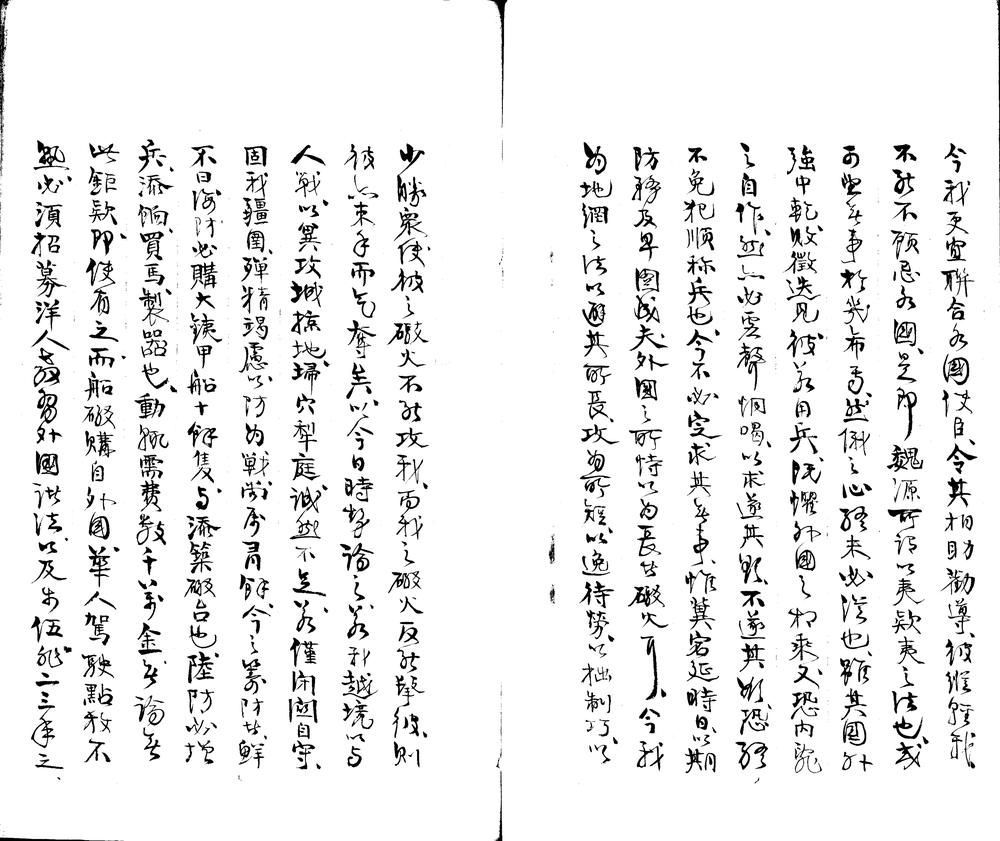 今我更宜聯合各國使臣、令其相助勸導、彼縱輕我、
不能不顧忌各國、是即魏源所謂以夷款夷之法也、或
可無事於幾布焉、然俄之心終未必從也、雖其國外
強中乾敗徵迭見、彼若用兵、既懼外國之相乘、又恐內亂
之自作、然亦必虛聲恫喝、以求遂其欲、不遂其欲、恐終
不免犯順称兵也、今不必定求其無事、惟冀宕延時日、以期
防務及早圖成、夫外國之所恃以為長者礟火耳、今我
為地網之法以避其所長、攻為所短、以逸待勞、以拙制巧、以
少勝眾、使彼之礟火不能攻我、而我之礟火反能擊彼、則
彼亦束手而乞奪矣、以今日時勢論之、若我越境以与
人戰、以冀攻城掠地、掃穴犁庭、誠然不足、若僅閉關自守、
固我疆圉、殫精竭慮、以防為戰、尚屬有餘、今之籌防者、鮮
不曰海防必購大鐵甲船十餘隻、与添築礟台也、陸防必增
兵、添餉、買馬、製器也、動輒需費數千萬金、無論無
此鉅款、即使有之、而船礟購自外國、華人駕駛點放不
熟、必須招募洋人教習外國諸法、以及步伍、非二三年之、